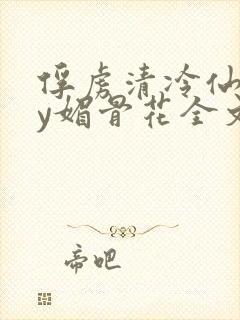 俘虏清冷仙
y媚骨花全文
帝吧